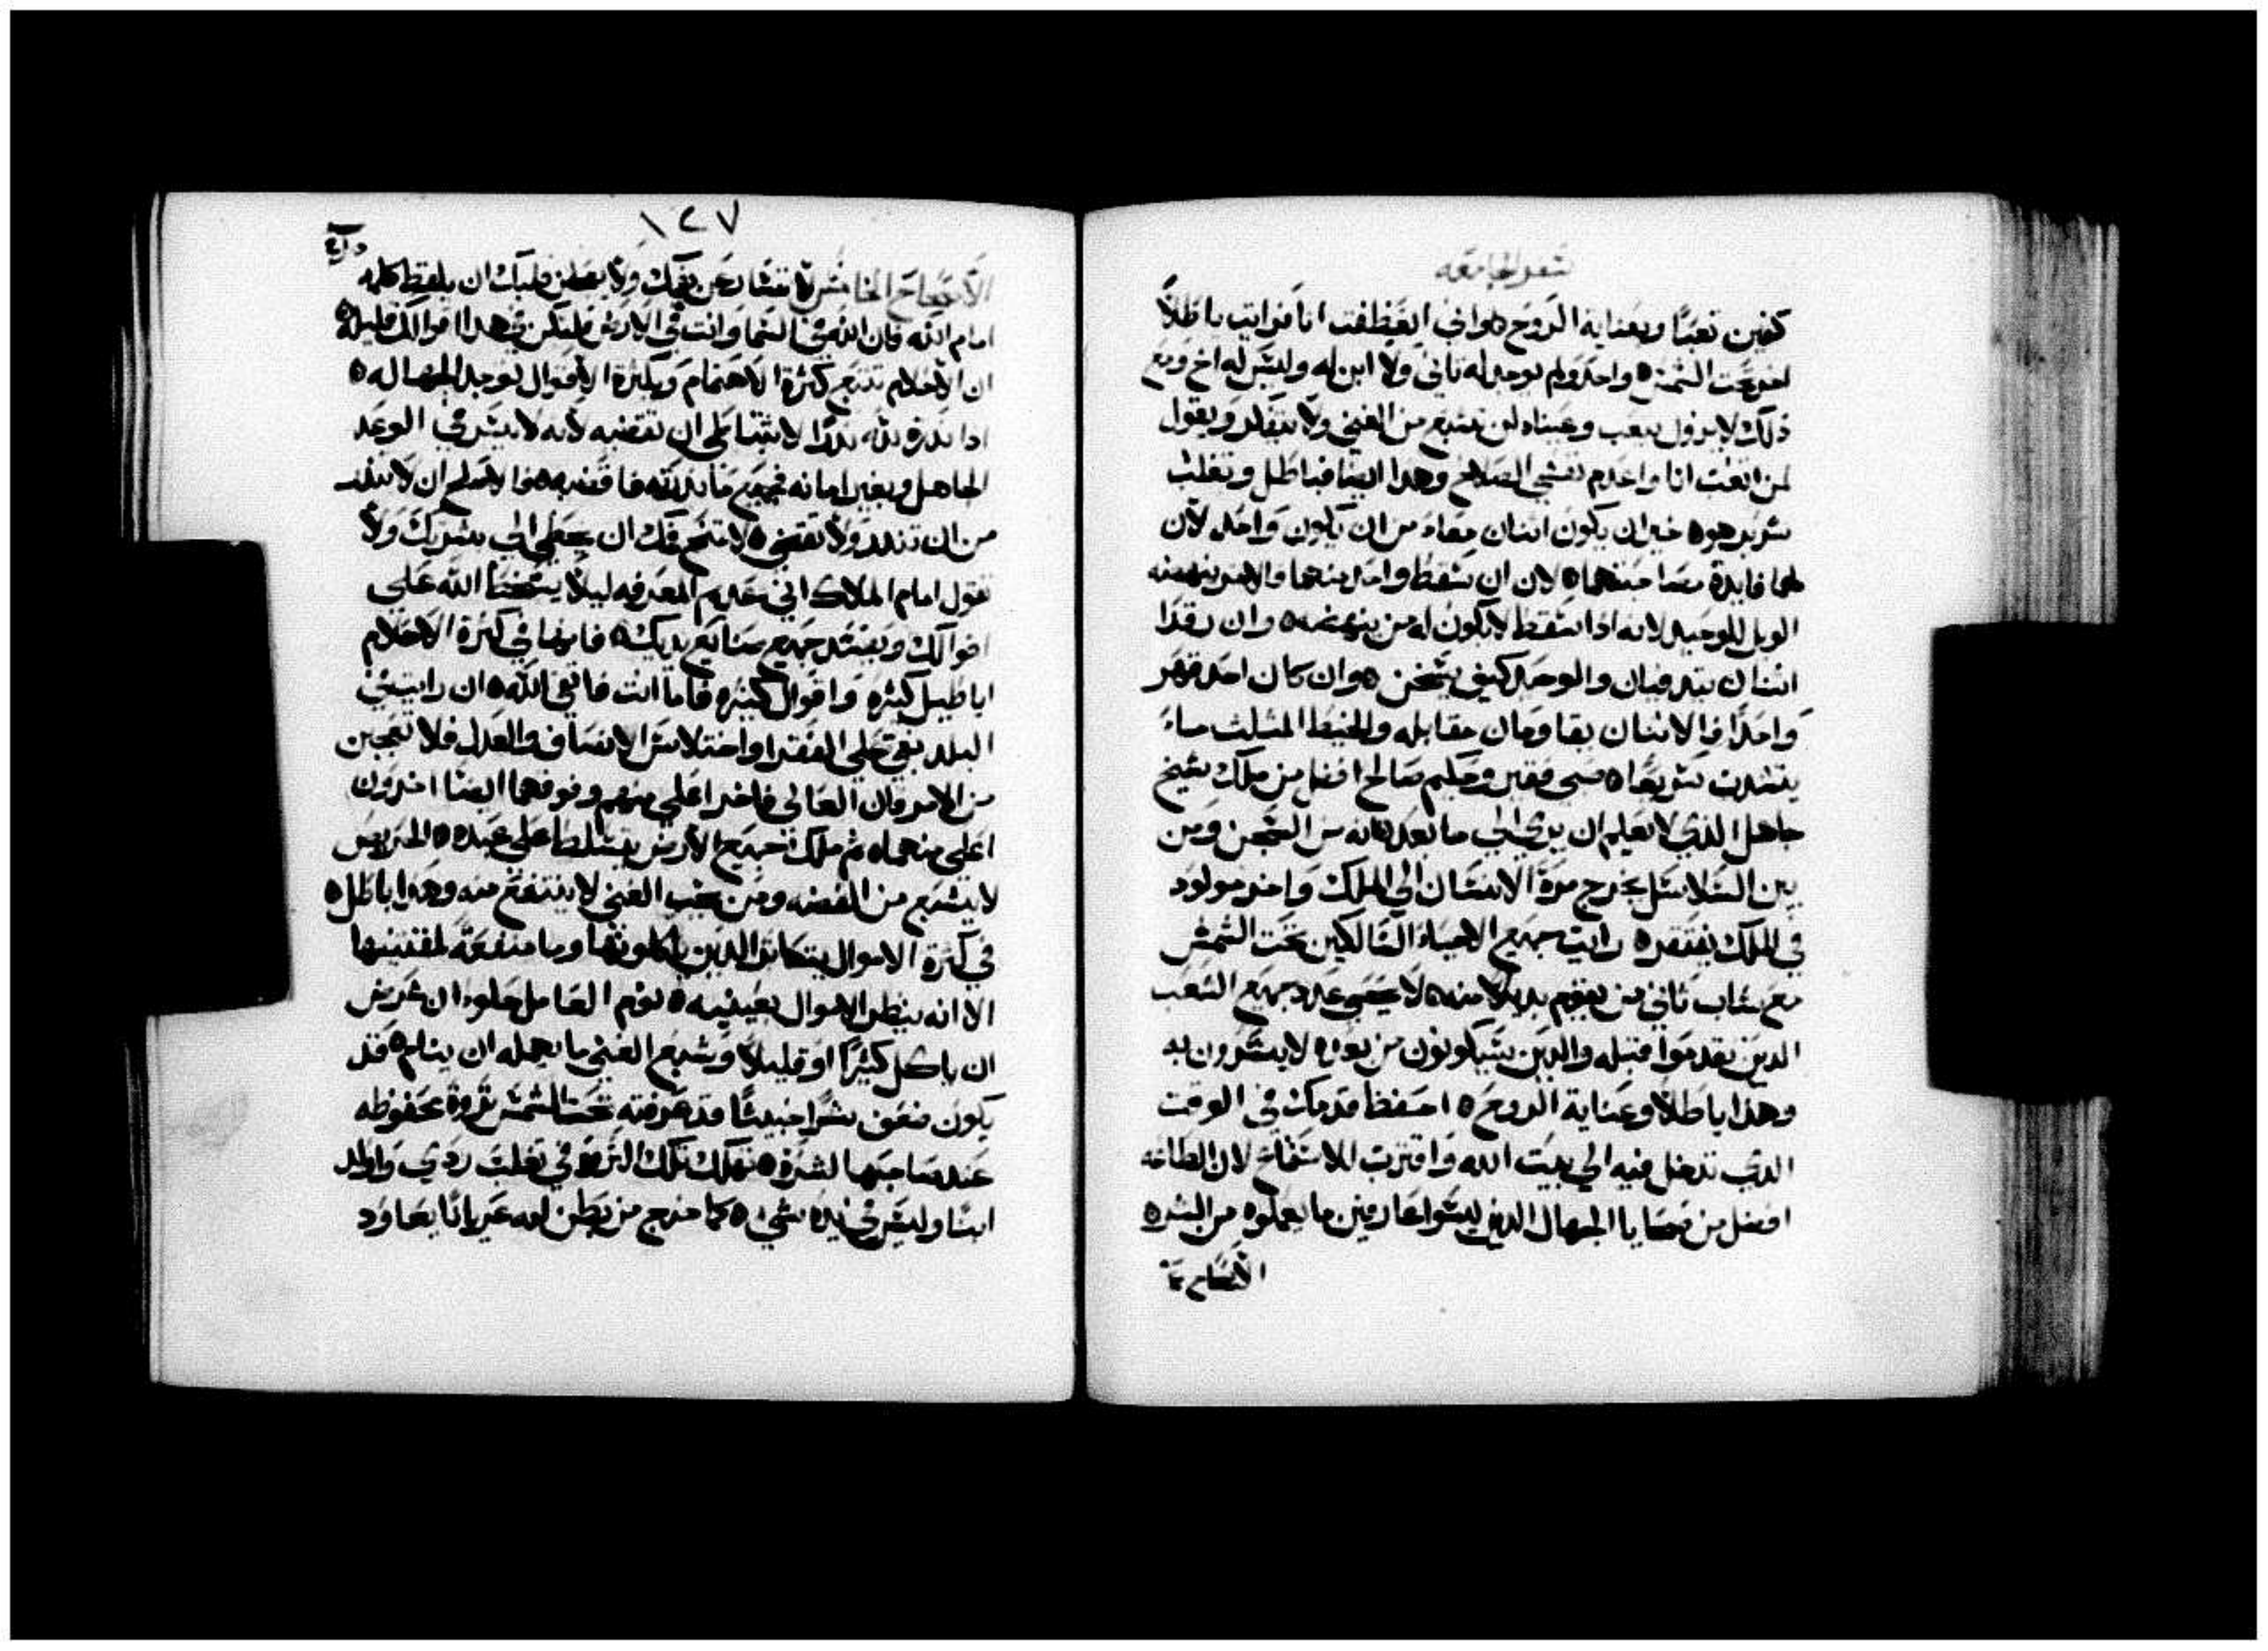 سفر الجامعه
كفين تعبًا وبعناية الروح ٥ واني انعطفت انا فرايت باطلًا
اخر تحت الشمس ٥ واحد ولم يوجد له ثاني ولا ابن له وليس له اخ ومع
ذلك لا يزول يتعب وعيناه لن تشبع من الغني ولا يتفكر ويقول
لمن اتعب انا واعدم نفسي الصلاح وهدا ايضا فباطل وتغلب
شرير هو ٥ خير ان يكون اتنان معاء من ان يكون واحد لان
لهما فايدة معا ٥ لان ان سقط واحد منهما والاخر ينهضه
الويل للوحيد لانه ادا سقط لا يكون له من ينهضه ٥ وان رقدا
اتنان يتدفيان والوحيد كيف يسخن ٥ وان كان احد قهر
واحدًا فالاتنان يقاومان مقابله والخيط المثلث ماء
ينتدب سريعًا ٥ صبي فقير وحكيم صالح افضل من ملك شيخ
جاهل الذي لا يعلم ان يري الي ما بعد لانه من السجن ومن
بين السلاسل يخرج مرة الانسان الي الملك واخر مولود
في الملك يفتقر ٥ رايت جميع الاحياء السالكين تحت الشمس
مع شاب ثاني من يقوم بدلا منه ٥ لا يحصي عدد جميع الشعب
الدين تقدموا قبله والدين سيكونون من بعده لا يسرون به
وهدا باطلًا وعناية الروح ٥ احفظ قدمك في الوقت
الدي تدخل فيه الي بيت الله واقترب للاستماع لان الطاعه
افضل من ضحايا الجهال الدين ليسوا عارفين ما يعملوه من الشر ٥
الاصحاح
١٢٧
الاصحاح الخامس لا تسارعن بفمك ولا يعجلن قلبك ان يلفظ كلمه
امام الله فان الله في السما وانت في الارض فلتكن في هدا اقوالك قليله ٥
ان الاحلام تتبع كثرة الاهتمام وبكثرة الاقوال توجد الجهاله ٥
ادا ندرت لله ندرًا لا تتباطي ان تقضيه لانه لا يسر في الوعد
الجاهل وبغير امانه فجميع ما ندرته فاقضيه ٥ فالاصلح ان لا تندر
من ان تندر ولا تقضي ٥ لا تسمح فمك ان يخطي الي بشريتك ولا
تقول امام الملاك اني عديم المعرفه ليلا يسخط الله علي
اقوالك ويفسد جميع صنايع يديك ٥ فانها في كثرة الاحلام
اباطيل كثيره واقوال كثيره فاما انت فاتقي الله ٥ ان رايت في
البلد بغي علي الفقرا واختلاس الانصاف والعدل فلا تعجبن
من الامر فان العالي فاخر اعلي منهم وفوقهما ايضا اخرون
اعلي منهما ٥ ثم ملك جميع الارض يتسلط علي عبده ٥ الحريص
لا يشبع من الفضه ومن يحب الغني لا ينتفع منه وهدا باطل ٥
في كثرة الاموال يتكاثر الدين ياكلونها وما منفعة لمقتنيها
الا انه ينظر الاموال بعينيه ٥ نوم العامل حلوا ان عرض
ان ياكل كثيرًا او قليلا وشبع الغني ما يمهله ان ينام ٥ قد
يكون ضعف شرًا خبيثًا قد عرفته تحت الشمس ثروة محفوظه
عند صاحبها لشره ٥ تهلك تلك الثروة في تغلب ردي واولد
ابنا وليس في يده شي ٥ كما خرج من بطن امه عريانًا يعاود